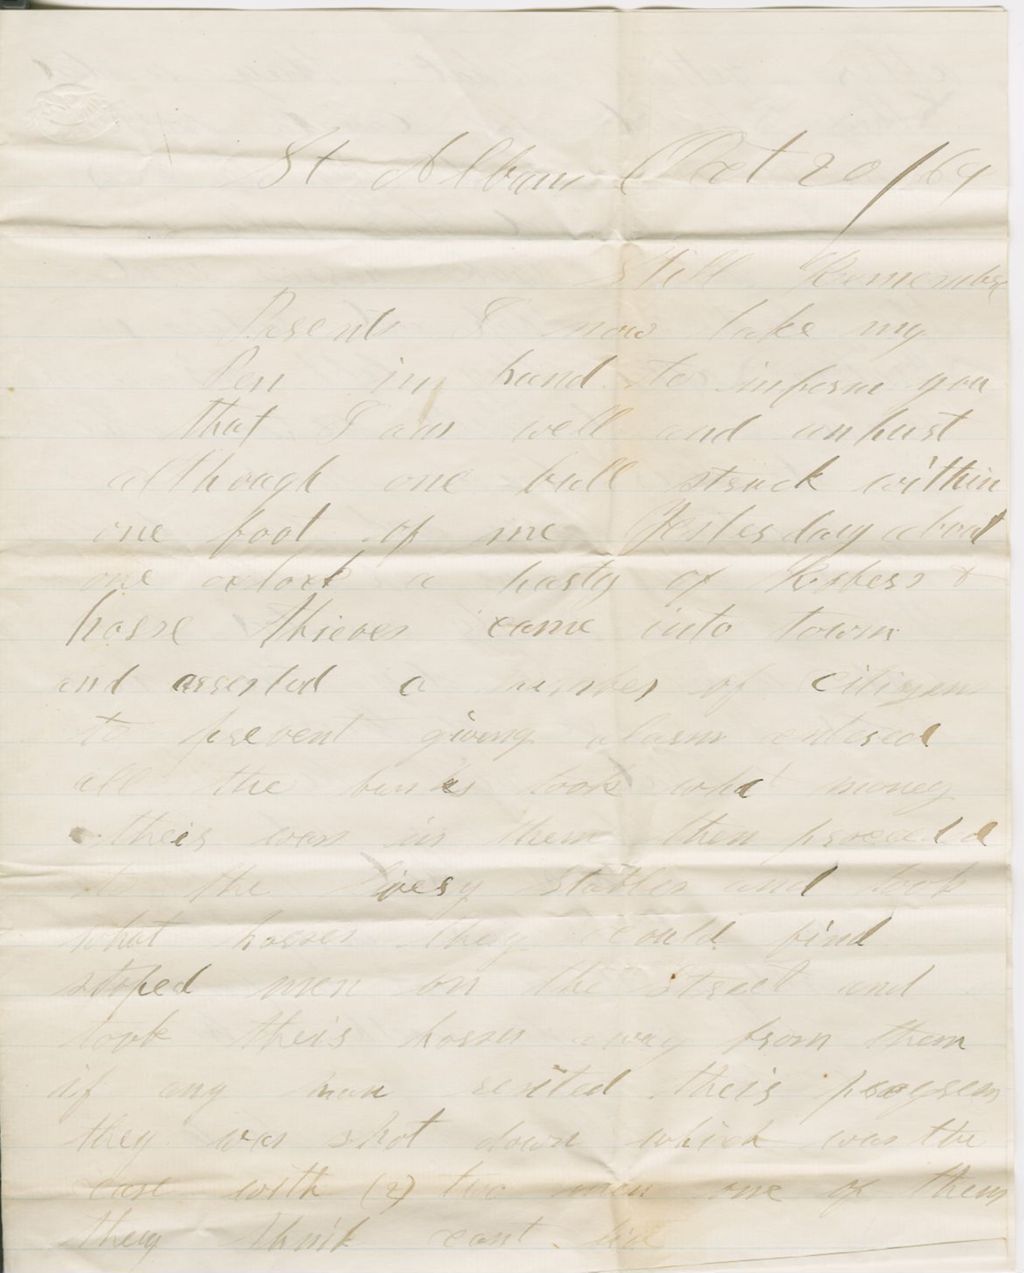 St Albans Oct 20/64
Still Remembr
Parents I now take my
Pen in hand to inform you
that I am well and unhurt
although one ball struck within
one foot of me Yesterday about
one oclock a party of Robers &
horse thieves came into town
and arrested a number of citizens
to prevent giving alarm entered
all the banks took what money
their was in them then proceded
to the livery stables and took
what horses they could find
stoped men on the street and
took their horses away from them
if any man resited their progress
they was shot down which was the
case with (2) two men one of them
they think cant live